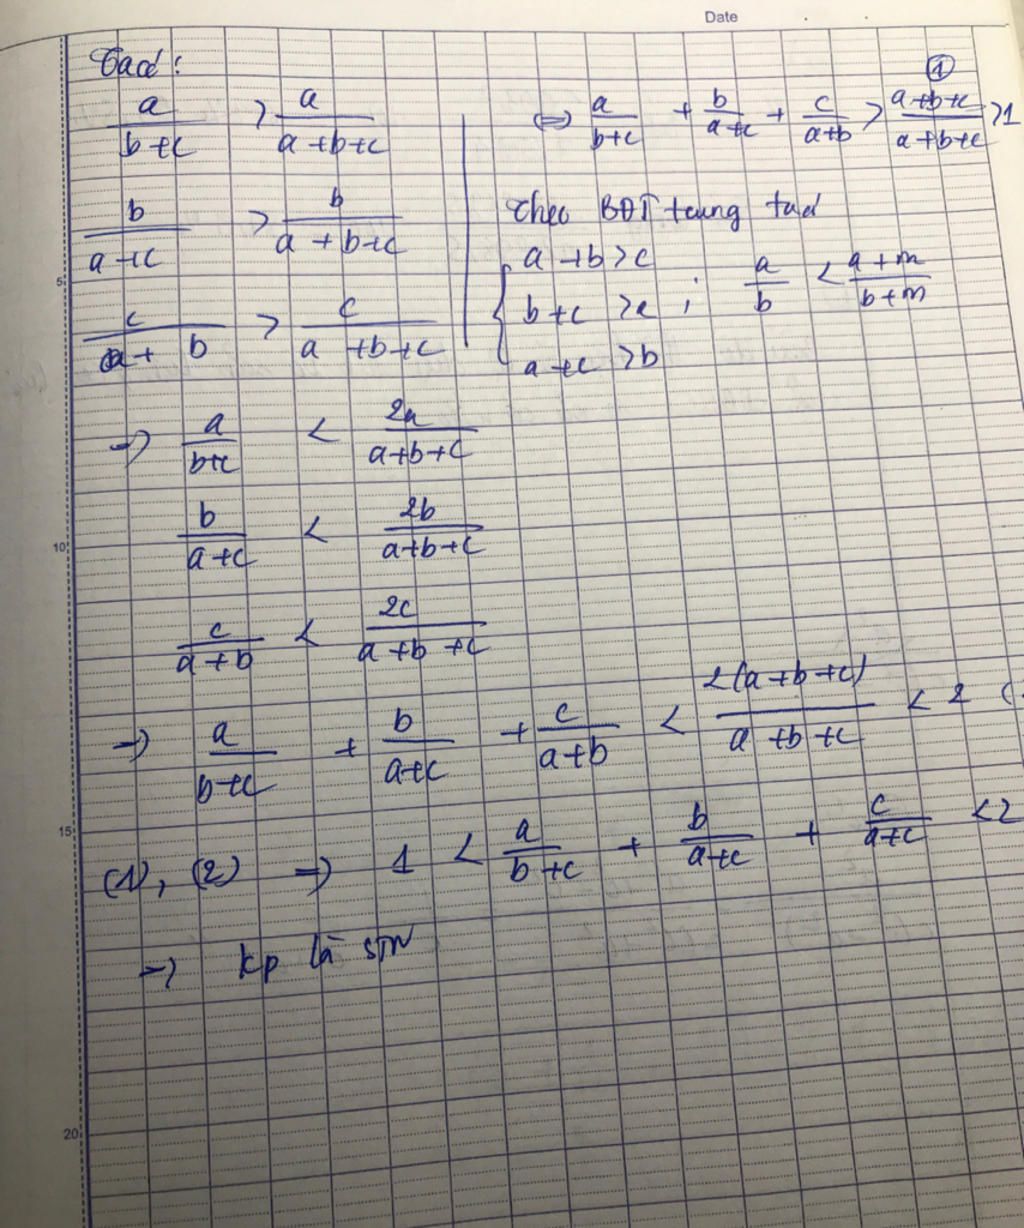 Date
Ta có:
a/(b+c) > a/(a+b+c)
b/(a+c) > b/(a+b+c)
c/(a+b) > c/(a+b+c)
①
⇔ a/(b+c) + b/(a+c) + c/(a+b) > (a+b+c)/(a+b+c) > 1
Theo BĐT trong ta có
{ a+b>c
b+c >a ; a/b < (a+m)/(b+m)
a+c >b
5
⇒ a/(b+c) < 2a/(a+b+c)
b/(a+c) < 2b/(a+b+c)
10
c/(a+b) < 2c/(a+b+c)
⇒ a/(b+c) + b/(a+c) + c/(a+b) < 2(a+b+c)/(a+b+c) < 2 (
15
(1), (2) ⇒ 1 < a/(b+c) + b/(a+c) + c/(a+c) < 2
⇒ kp là STN
20